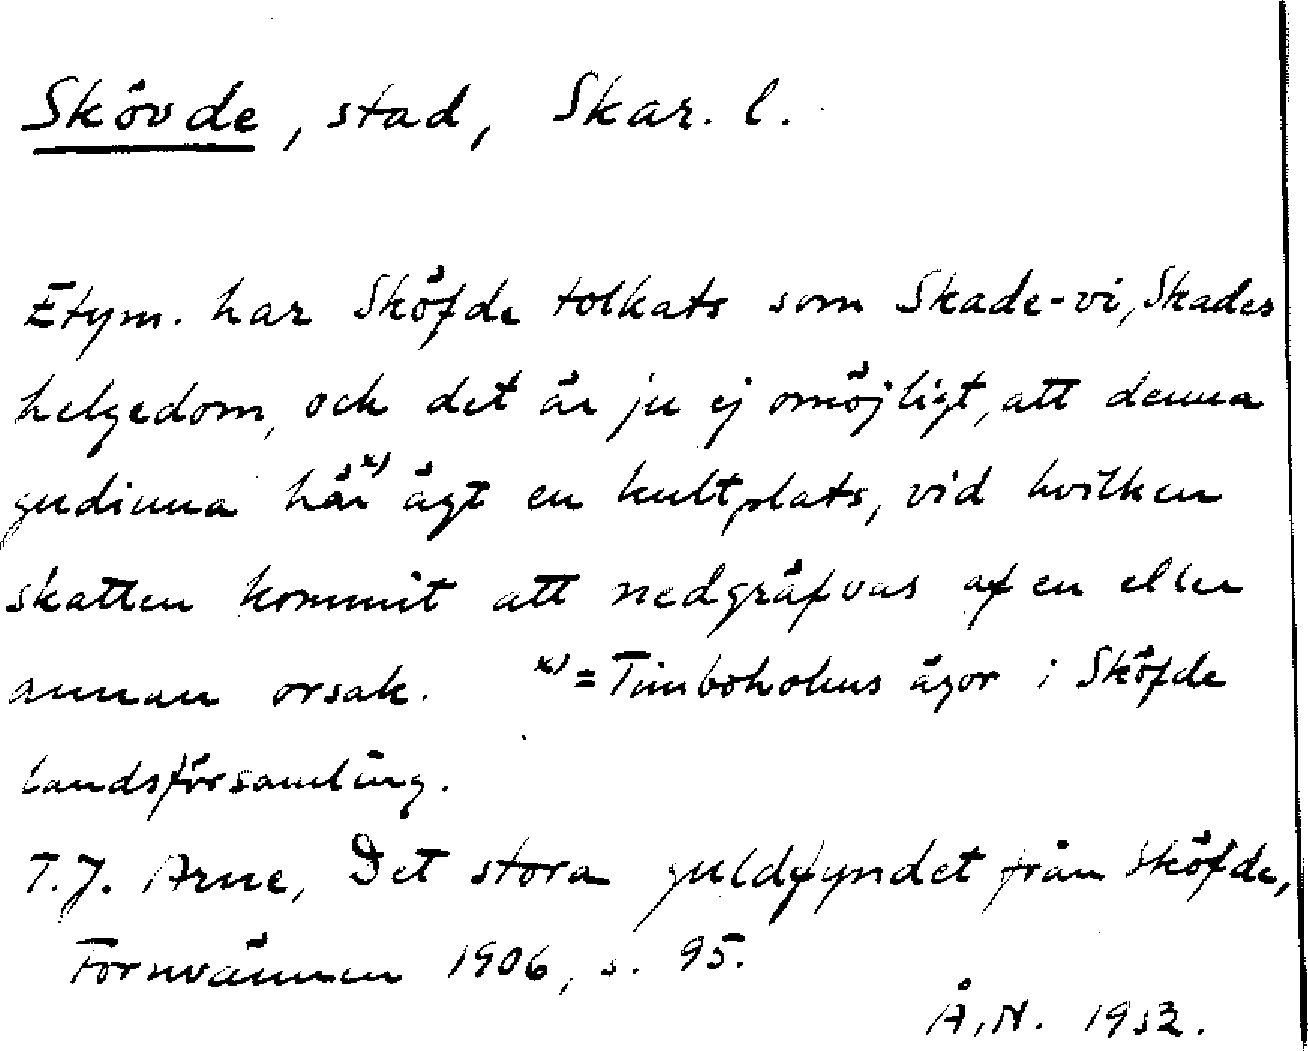 Skövde, stad, Skar. l.
Etym. har Sköfde tolkats som Skade-vi, Skades
helgedom, och det är ju ej omöjligt, att denna
gudinna här x) ägt en kultplats, vid hvilken
skatten kommit att nedgräfvas af en eller
annan orsak. x) = Timbohohus ägor i Sköfde
landsförsamling.
T.J. Arne, Det stora guldfyndet från Sköfde,
Fornvännen 1906, s. 95.
Å.N. 1932.